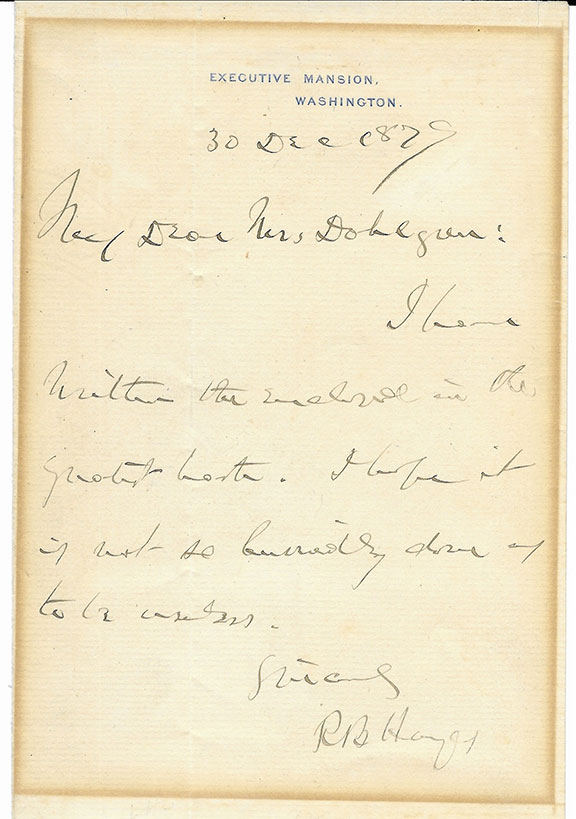 EXECUTIVE MANSION,
WASHINGTON.
30 Dec 1879
My Dear Mrs Dahlgren:
I have
written the enclosed in the
greatest haste. I hope it
is not so hurriedly done as
to be useless.
Sincerely
R B Hayes